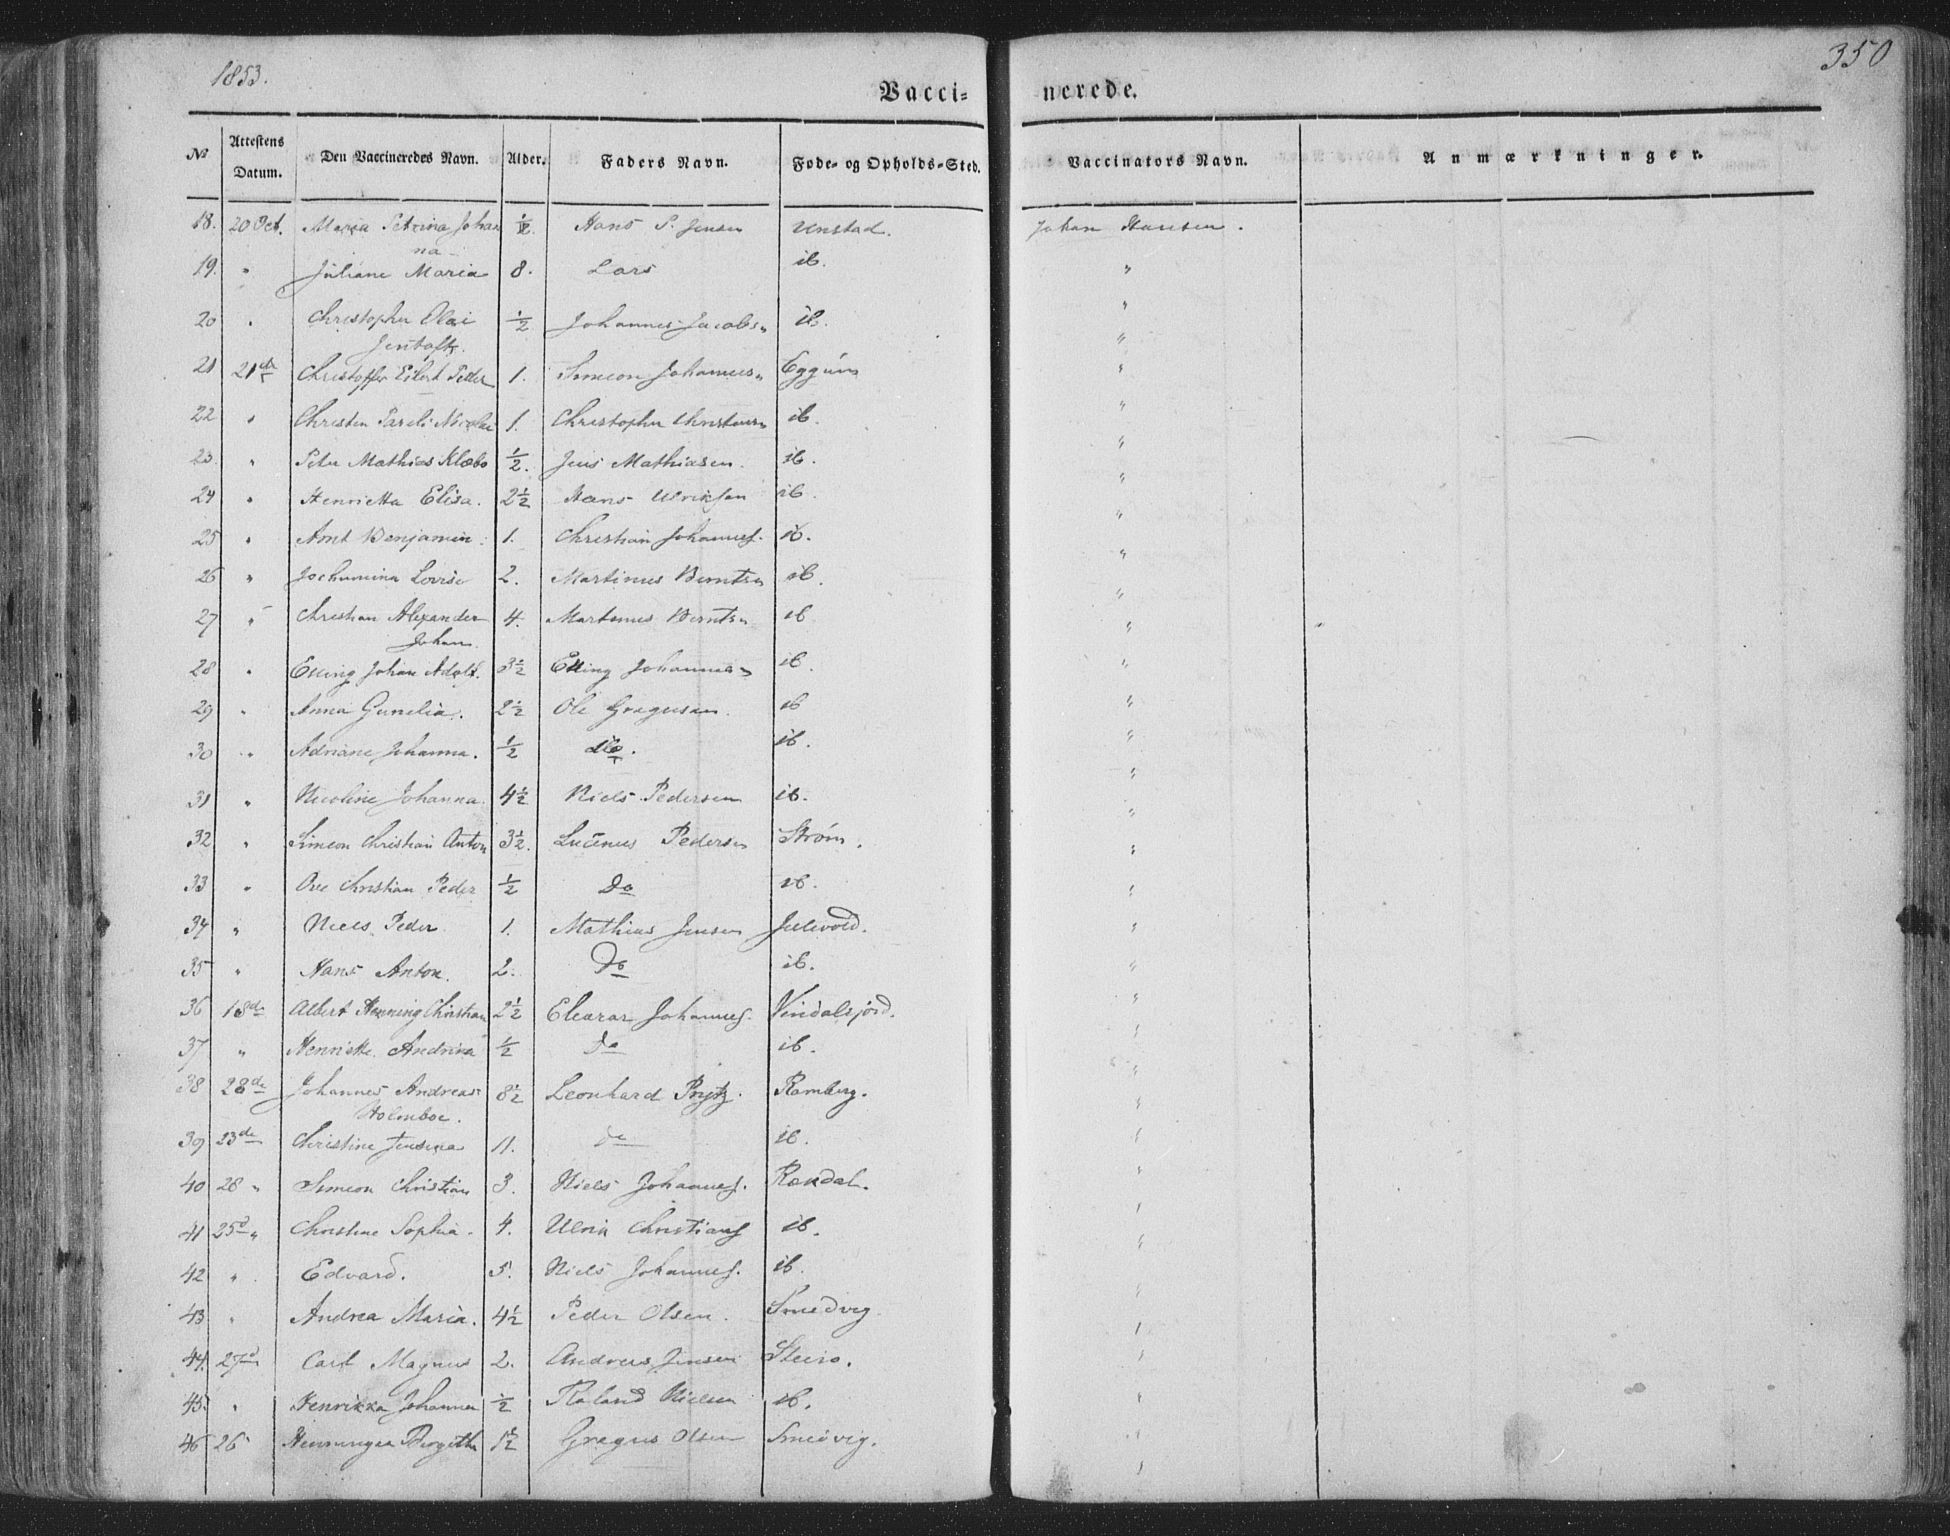 1853.
350
Vacci- nerede.
No Attestens Datum. Den Vaccineredes Navn. Alder. Faders Navn. Føde- og Opholds-Sted. Vaccinators Navn. Anmærkninger.
18. 20 Oct. Maria Petrina Johan 1/2. Hans P. Jensen Unstad. Johan Hansen.
na
19. " Juliane Maria 8. Lars ib. "
20 " Christopher Olai 1/2 Johannes Jacobsn ib. "
Jentoft.
21 21de Christoffer Eilert Peder 1. Simeon Johannesn Eggum "
22 " Christen Pareli Nicolai 1. Christopher Christensn ib. "
23. " Peter Mathias Klæbo 1/2. Jens Mathiasen. ib. "
24 " Henrietta Elisa. 2 1/2 Hans Ulriksen ib. "
25 " Arnt Benjamin. 1. Christian Johannes. ib. "
26 " Jochumina Lovise 2. Martinus Berntsn ib. "
27 " Christian Alexander 4. Martinus Berntsn ib "
Johan
28 " Elling Johan Adolf. 3 1/2 Elling Johannesn ib. "
29 " Anna Gunelia. 2 1/2 Ole Gregusen. ib "
30 " Adriane Johanna. 1/2 do. ib. "
31 " Nicoline Johanna. 4 1/2 Niels Pedersen ib. "
32 " Simeon Christian Anton 3 1/2. Lucenus Pedersn Strøm. "
33 " Ove Christian Peder 1/2 Do ib. "
34 " Niels Peder 1. Mathias Jensen Julevold. "
35 " Hans Anton. 2. Do ib. "
36 18de Albert Henning Christian 2 1/2 Elearar Johannes. Vindalsjord. "
37 " Henriette Andrina 1/2 do ib. "
38 28de Johannes Andreas 8 1/2 Leonhard Prytz. Ramberg. "
Holmboe.
39 23de Christine Jensine 11. do ib. "
40 28 " Simeon Christian 3. Niels Johannes. Ræmdal. "
41 25d " Christine Sophia. 4. Ulrik Christians ib. "
42 " Edvard. 5. Niels Johannes. ib. "
43 " Andrea Maria. 4 1/2 Peder Olsen. Smedvig "
44. 27d Carl Magnus 2. Andreas Jensen Steiro. "
45. " Henrikka Johanna 1/2 Roland Nielsen ib. "
46 26 Henningea Bergitha 1 1/2 Gregus Olsen Smedvig. "